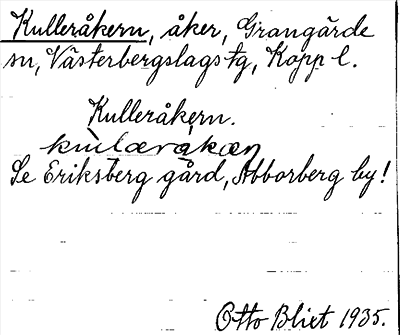 Kulleråkern, åker, Grangärde
sn, Västerbergslags tg, Kopp. l.
Kulleråkern.
Se Eriksberg gård, Abborberg by!
Otto Blixt 1935.